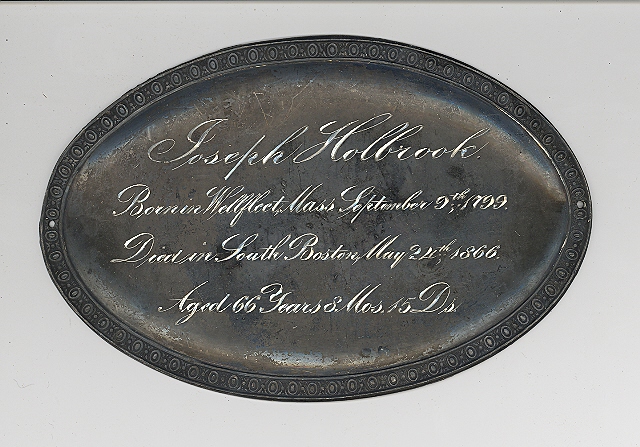 Joseph Holbrook.
Born in Wellfleet, Mass September 9th, 1799.
Died in South Boston, May 24th 1866.
Aged 66 Years 8 Mos. 15 Ds.